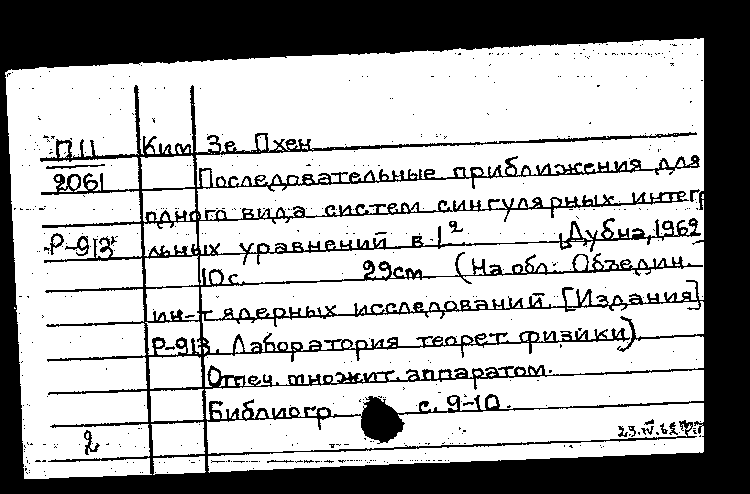 П11 Ким Зе Пхен
2061 Последовательные приближения для
одного вида систем сингулярных интегр
Р-913 льных уравнений в L². Дубна, 1962
10с. 29cm (На обл: Объедин.
ин-т ядерных исследований. [Издания]
Р-913. Лаборатория теорет. физики).
Отпеч. множит. аппаратом.
Библиогр. с. 9-10.
2 23.IV.62